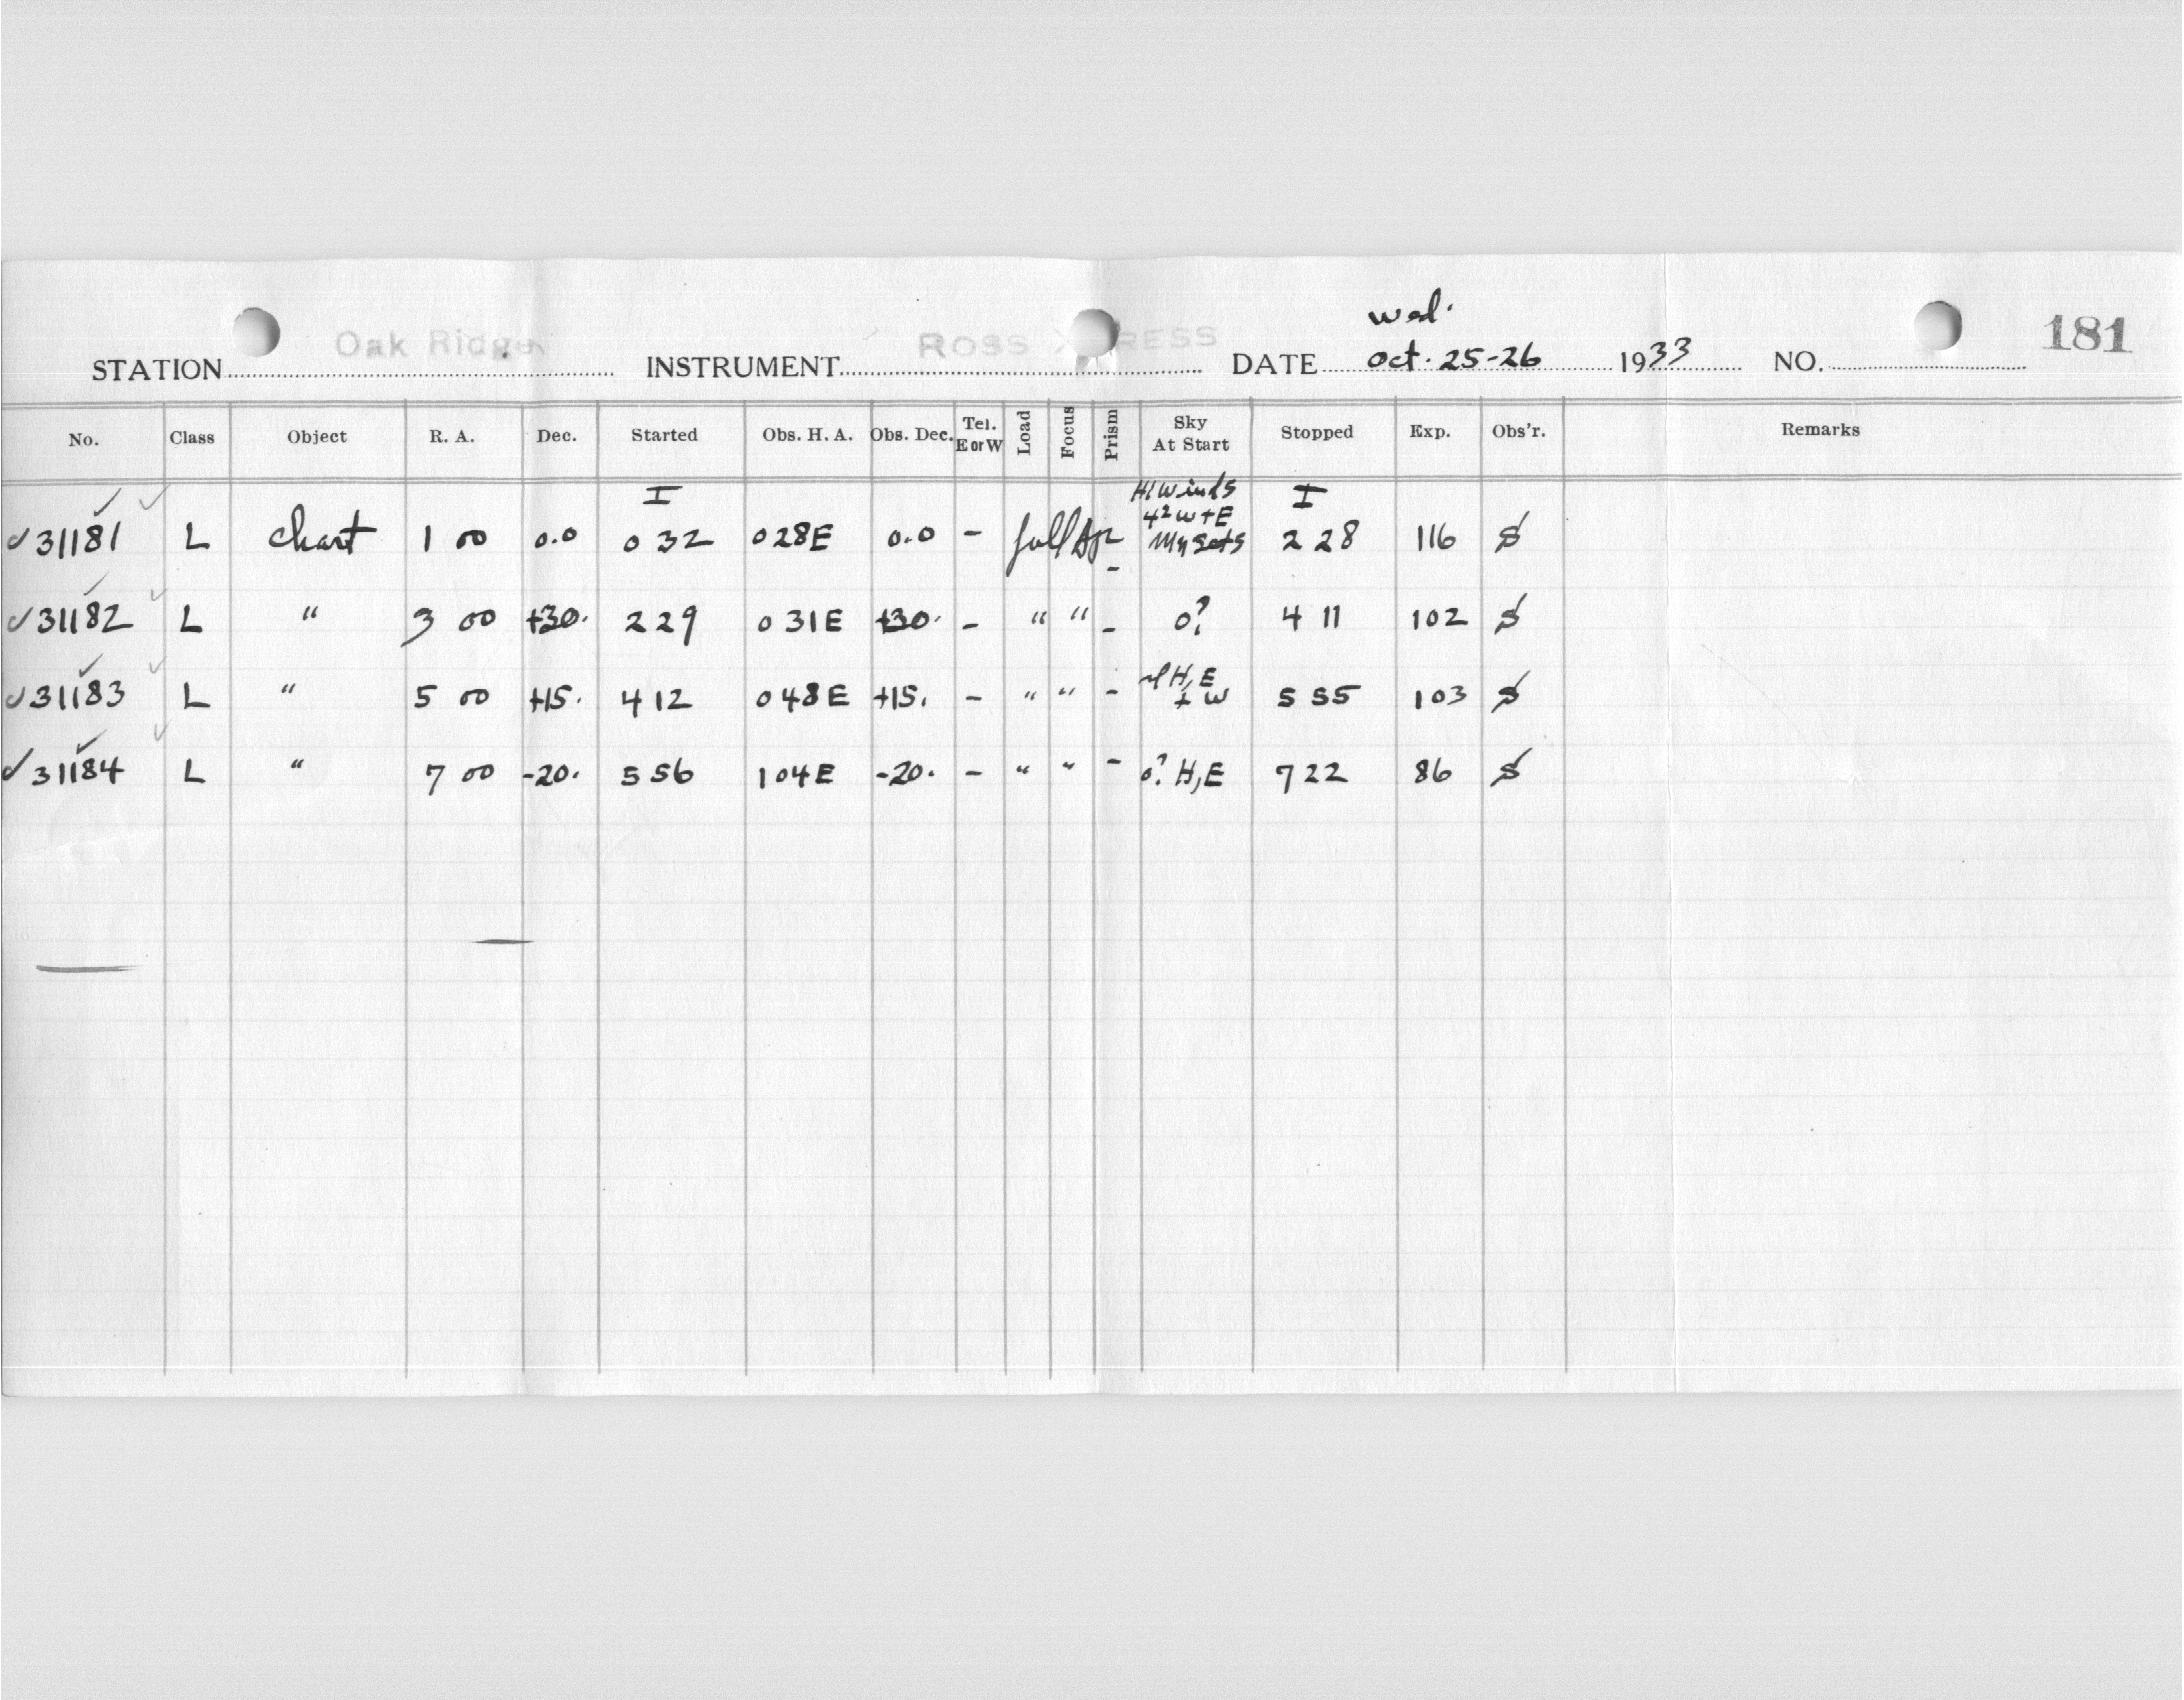 wed.
STATION Oak Ridge INSTRUMENT ROSS XPRESS DATE Oct. 25-26 1933 NO. 181
No. Class Object R. A. Dec. Started Obs. H. A. Obs. Dec. Tel. E or W Load Focus Prism Sky At Start Stopped Exp. Obs'r. Remarks
31181 L Chart 1 00 0.0 I 0 32 0 28E 0.0 - full Ap - winds I 2 28 116 S
31182 L " 3 00 +30. 2 29 0 31E +30. - " " - 0? 4 11 102 S
31183 L " 5 00 +15. 4 12 0 48E +15. - " " - H, E + W 5 55 103 S
31184 L " 7 00 -20. 5 56 1 04E -20. - " " - 0? H, E 7 22 86 S